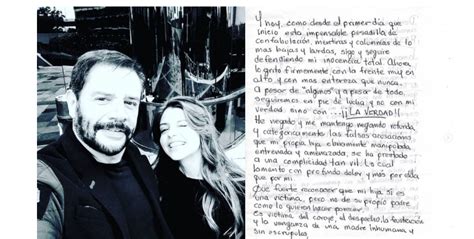 Y hoy, como desde el primer día que
inicio esta impensable pesadilla de
confabulación, mentiras y calumnias de lo
mas bajas y burdas, sigo y seguire
defendiendo mi inocencia total. Ahora
lo grito firmemente, con la frente muy en
alto y con mas entereza que nunca.
A pesar de "algunos" y a pesar de todo
seguiremos en pie de lucha y no con mi
verdad sino con ...¡¡LA VERDAD!!
He negado y me mantengo negando rotunda
y categoricamente las falsas acusaciones
que mi propia hija obviamente manipulada,
entrenada y amenazada, se ha prestado
a una complicidad tan vil. Lo cual
lamento con profundo dolor y más por ella
que por mi.
Que fuerte reconocer que mi hija sí es
una victima, pero no de su propio padre
como lo quieren hacer parecer.
Es victima del coraje, el despecho, la frustración
y la venganza de una madre inhumana y
sin escrupulos.